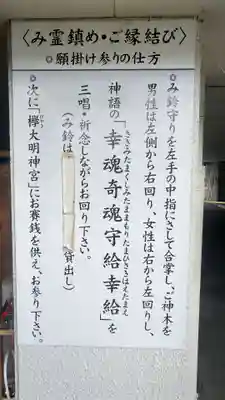 〈み霊鎮め・ご縁結び〉
◎願掛け参りの仕方
◎み鈴守りを左手の中指にさして合掌し、ご神木を
男性は左側から右回り、女性は右から左回りし、
神語の「幸魂奇魂守給幸給」を
さきみたまくしみたままもりたまひさきはえたまえ
三唱・祈念しながらお回り下さい。
(み鈴は 貸出し)
◎次に「欅大明神宮」にお賽銭を供え、お参り下さい。